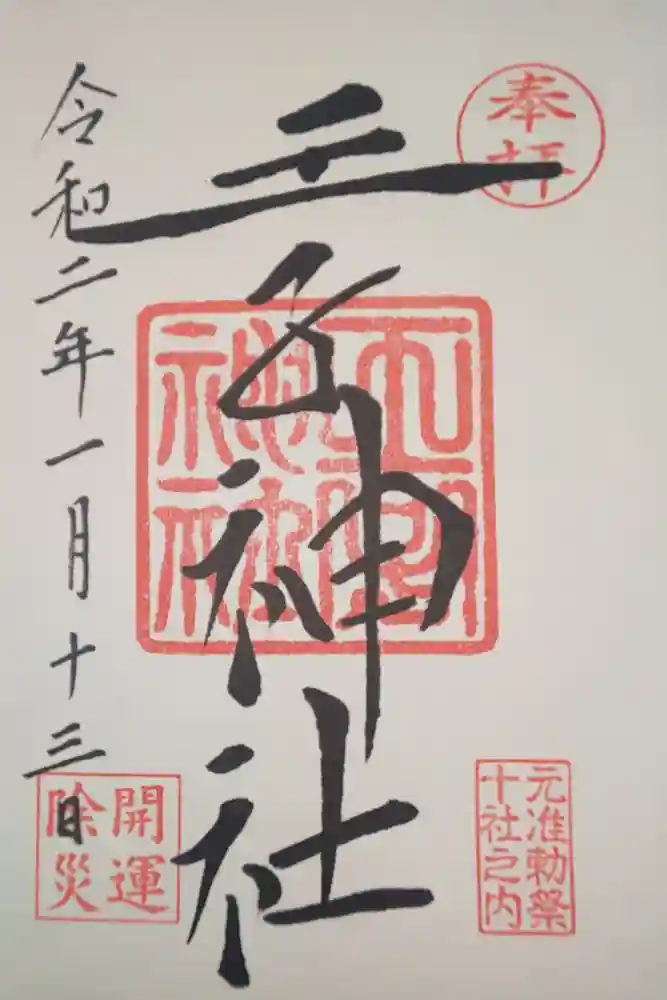 奉拝
王子神社
令和二年一月十三日
元准勅祭
十社之内
開運
除災